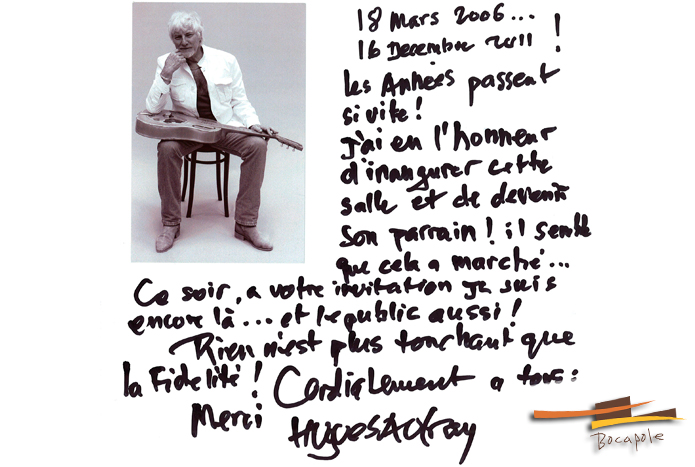 18 Mars 2006...
16 Decembre 2011 !
Les Années passent
si vite !
J'ai eu l'honneur
d'inaugurer cette
salle et de devenir
son parrain ! il semble
que cela a marché...
Ce soir, a votre invitation je suis
encore là... et le public aussi !
Rien n'est plus touchant que
la Fidelité ! Cordialement a tous :
Merci HuguesAufray
Bocapole